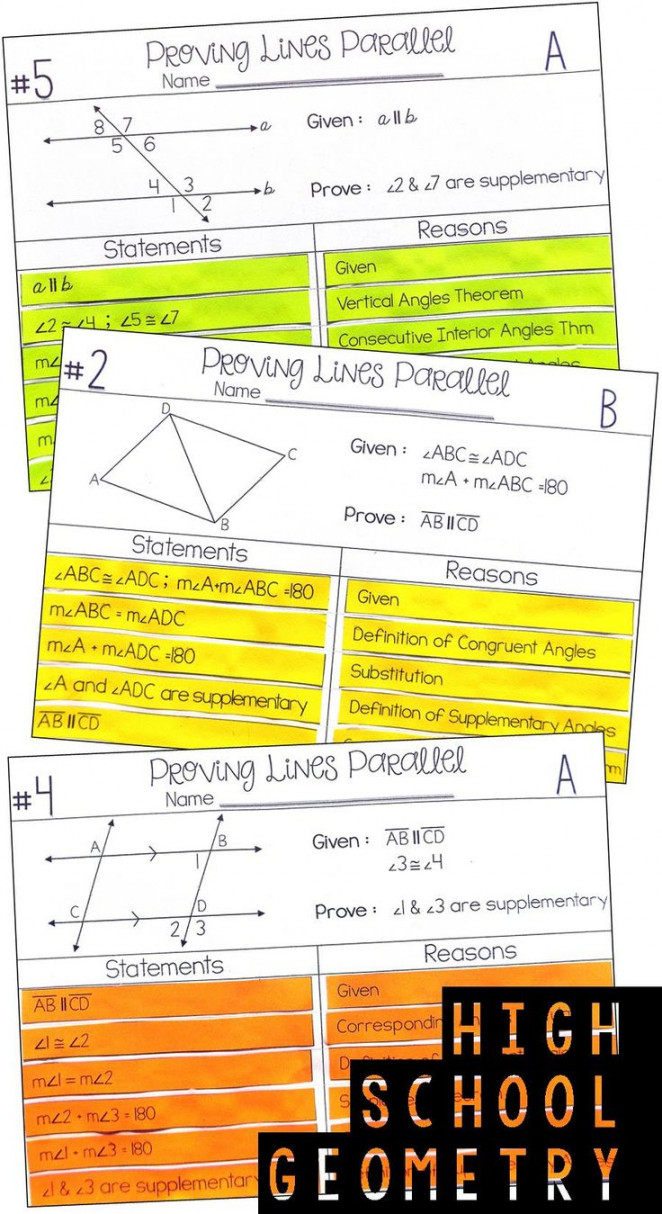 #5
Proving Lines Parallel
A
Name
8 7
a
5 6
4 3
b
1 2
Given : a ∥ b
Prove : ∠2 & ∠7 are supplementary
Statements
Reasons
a ∥ b
Given
∠2 ≅ ∠4 ; ∠5 ≅ ∠7
Vertical Angles Theorem
m∠
Consecutive Interior Angles Thm
m∠
Angles
m
∠
#2
Proving Lines Parallel
B
Name
D
C
A
B
Given : ∠ABC ≅ ∠ADC
m∠A + m∠ABC =180
Prove : AB ∥ CD
Statements
Reasons
∠ABC ≅ ∠ADC ; m∠A+m∠ABC =180
Given
m∠ABC = m∠ADC
Definition of Congruent Angles
m∠A + m∠ADC =180
Substitution
∠A and ∠ADC are supplementary
Definition of Supplementary Angles
AB ∥ CD
#4
Proving Lines Parallel
A
Name
A B
1
C D
2 3
Given : AB ∥ CD
∠3 ≅ ∠4
Prove : ∠1 & ∠3 are supplementary
Statements
Reasons
AB ∥ CD
Given
∠1 ≅ ∠2
m∠1 = m∠2
m∠2 + m∠3 = 180
m∠1 + m∠3 = 180
∠1 & ∠3 are supplementary
HIGH
SCHOOL
GEOMETRY